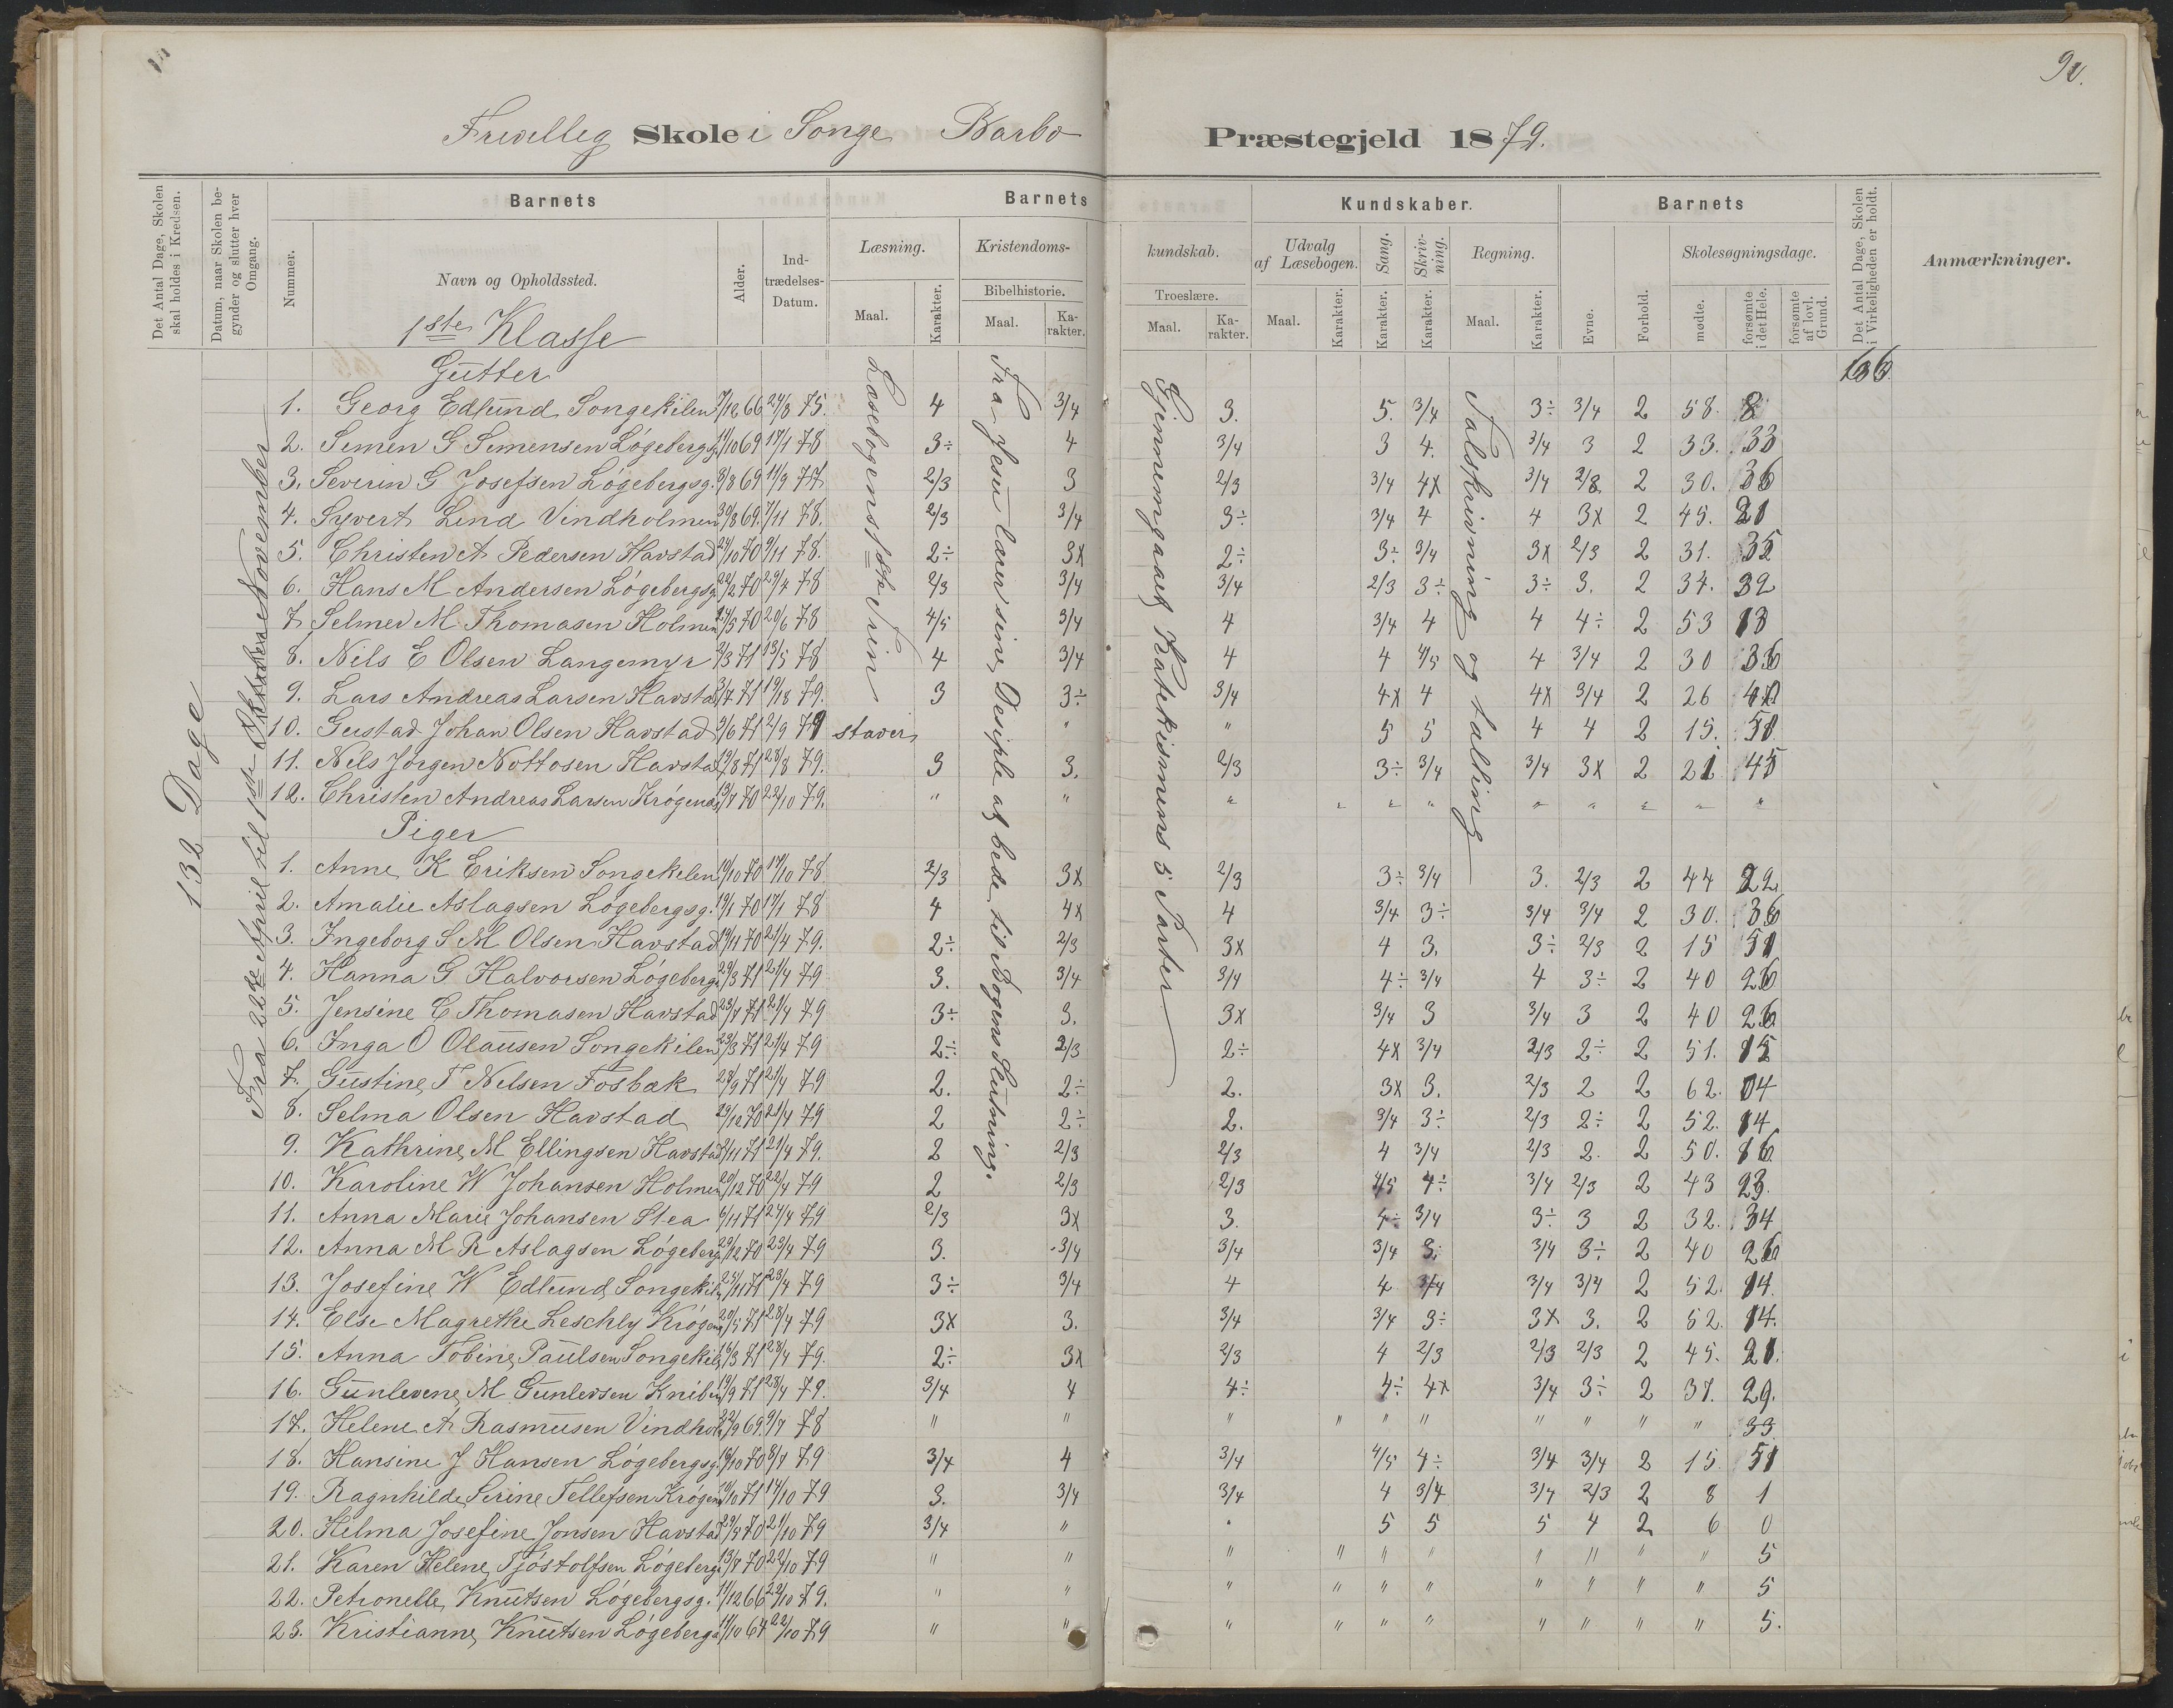 9
Frivillig Skole i Songe Barbo Præstegjeld 1879.
Det Antal Dage, Skolen skal holdes i Kredsen.
Datum, naar Skolen begynder og slutter hver Omgang.
Barnets
Nummer.
Navn og Opholdssted.
Alder.
Indtrædelses-Datum.
Barnets Kundskaber.
Læsning.
Maal.
Karakter.
Kristendomskundskab.
Bibelhistorie.
Maal.
Karakter.
Troeslære.
Maal.
Karakter.
Udvalg af Læsebogen.
Maal.
Karakter.
Sang.
Karakter.
Skrivning.
Karakter.
Regning.
Maal.
Karakter.
Barnets
Evne.
Forhold.
Skolesøgningsdage.
mødte.
forsømte i det Hele.
forsømte af lovl. Grund.
Det Antal Dage, Skolen i Virkeligheden er holdt.
Anmærkninger.
132 Dage
Fra 22de April til 1ste November
Læsebogens 1ste Trin
Fra Jesu lærer sine Disciple at bede til Bogens Slutning.
Gjennemgaaet Katekismens 5 Parter
Talskrivning og talling
66
1ste Klasse
Gutter
1. Georg Edlund Songekilen 7/12 66 24/8 75. 4 3/4 3. 5. 3/4 3÷ 3/4 2 58. 8
2. Simen G Simensen Løgebergsg. 11/10 69 17/1 78 3÷ 4 3/4 3 4. 3/4 3 2 33. 33
3. Severin G Josefsen Løgebergsg. 9/8 69 11/9 77 2/3 3 2/3 3/4 4x 3/4 2/3 2 30. 36
4. Syvert Lind Vindholmen 30/8 69. 7/11 78. 2/3 3/4 3÷ 3/4 4 4 3x 2 45. 21
5. Christen A Pedersen Havstad 24/10 70 9/11 78. 2÷ 3x 2÷ 3÷ 3/4 3x 2/3 2 31. 35
6. Hans M Andersen Løgebergsg. 22/2 70 29/4 78 2/3 3/4 3/4 2/3 3÷ 3÷ 3. 2 34. 32
7. Selmer M Thomasen Holmen 24/5 70 20/6 78 4/5 3/4 4 3/4 4 4 4÷ 2 53 13
8. Nils E Olsen Langemyr 2/3 71 13/5 78 4 3/4 4 4 4/5 4 3/4 2 30 36
9. Lars Andreas Larsen Havstad 3/7 71 19/8 79. 3 3÷ 3/4 4x 4 4x 3/4 2 26 40
10. Gustad Johan Olsen Havstad 2/6 71 2/9 79 staver " " 5 5 4 4 2 15. 51
11. Nels Jørgen Nottosen Havstad 19/8 71 28/8 79. 3 3. 2/3 3÷ 3/4 3/4 3x 2 21 45
12. Christen Andreas Larsen Krøgenes 13/7 70 22/10 79. " " " " " " " " " " "
Piger
1. Anne K Eriksen Songekilen 19/10 70 17/10 78 2/3 3x 2/3 3÷ 3/4 3. 2/3 2 44 22
2. Amalie Aslagsen Løgebergsg. 19/1 70 17/1 78 4 4x 4 3/4 3÷ 3/4 3/4 2 30. 36
3. Ingeborg S M Olsen Havstad 19/11 70 21/4 79. 2÷ 2/3 3x 4 3. 3÷ 2/3 2 15 51
4. Hanna G Halvorsen Løgebergsg. 29/3 71 21/4 79 3. 3/4 3/4 4÷ 3/4 4 3÷ 2 40 26
5. Jensine C Thomasen Havstad 23/7 71 21/4 79 3÷ 3. 3x 3/4 3 3/4 3 2 40 26
6. Inga O Olausen Songekilen 23/3 71 21/4 79 2÷ 2/3 2÷ 4x 3/4 2/3 2÷ 2 51. 15
7. Gustine T Nelsen Fosbæk 28/9 71 21/4 79 2. 2÷ 2. 3x 3. 2/3 2 2 62. 04
8. Selma Olsen Havstad 29/12 70 21/4 79 2 2÷ 2. 3/4 3÷ 2/3 2÷ 2 52. 14
9. Kathrine M Ellingsen Havstad 2/11 71 21/4 79. 2 2/3 2/3 4 3/4 2/3 2. 2 50. 16
10. Karoline W Johansen Holmen 20/12 70 22/4 79 2 2/3 2/3 4/5 4÷ 3/4 2/3 2 43 23.
11. Anna Marie Johansen Stea 6/11 71 24/4 79 2/3 3x 3. 4÷ 3/4 3÷ 3 2 32. 34
12. Anna M R Aslagsen Løgebergsg. 29/12 70 23/4 79 3. 3/4 3/4 3/4 3. 3/4 3÷ 2 40 26
13. Josefine W Edlund Songekilen 23/11 71 23/4 79 3÷ 3/4 4 4 3/4 3/4 3/4 2 52 14.
14. Else Magrethe Leschly Krøgenes 20/5 71 28/4 79 3x 3. 3/4 3/4 3÷ 3x 3. 2 52. 14.
15. Anna Tobine Paulsen Songekilen 16/3 71 28/4 79. 2÷ 3x 2/3 4 2/3 2/3 2/3 2 45. 21.
16. Gunlevene M Gunlevsen Kniben 19/9 71 28/4 79. 3/4 4 4÷ 4÷ 4x 3/4 3÷ 2 37. 29.
17. Helene A Rasmusen Vindholm 22/9 69. 9/7 78 " " " " " " " " " " 33
18. Hansine J Hansen Løgebergsg. 16/10 70 8/7 79 3/4 4 3/4 4/5 4÷ 3/4 3/4 2 15 51
19. Ragnhilde Serine Tellefsen Krøgenes 10/10 71 14/10 79 3. 3/4 3/4 4 3/4 3/4 2/3 2 8 1
20. Hilma Josefine Jonsen Havstad 29/4 70 21/10 79 3/4 " " 5 5 5 4 2 6 0
21. Karen Helene Tjøstolfsen Løgebergsg. 13/7 70 22/10 79 " " " " " " " " " " 5
22. Petronelle Knutsen Løgebergsg. 11/12 66 22/10 79. " " " " " " " " " " 5
23. Kristianne Knutsen Løgebergsg. 11/10 64 22/10 79 " " " " " " " " " " 5.